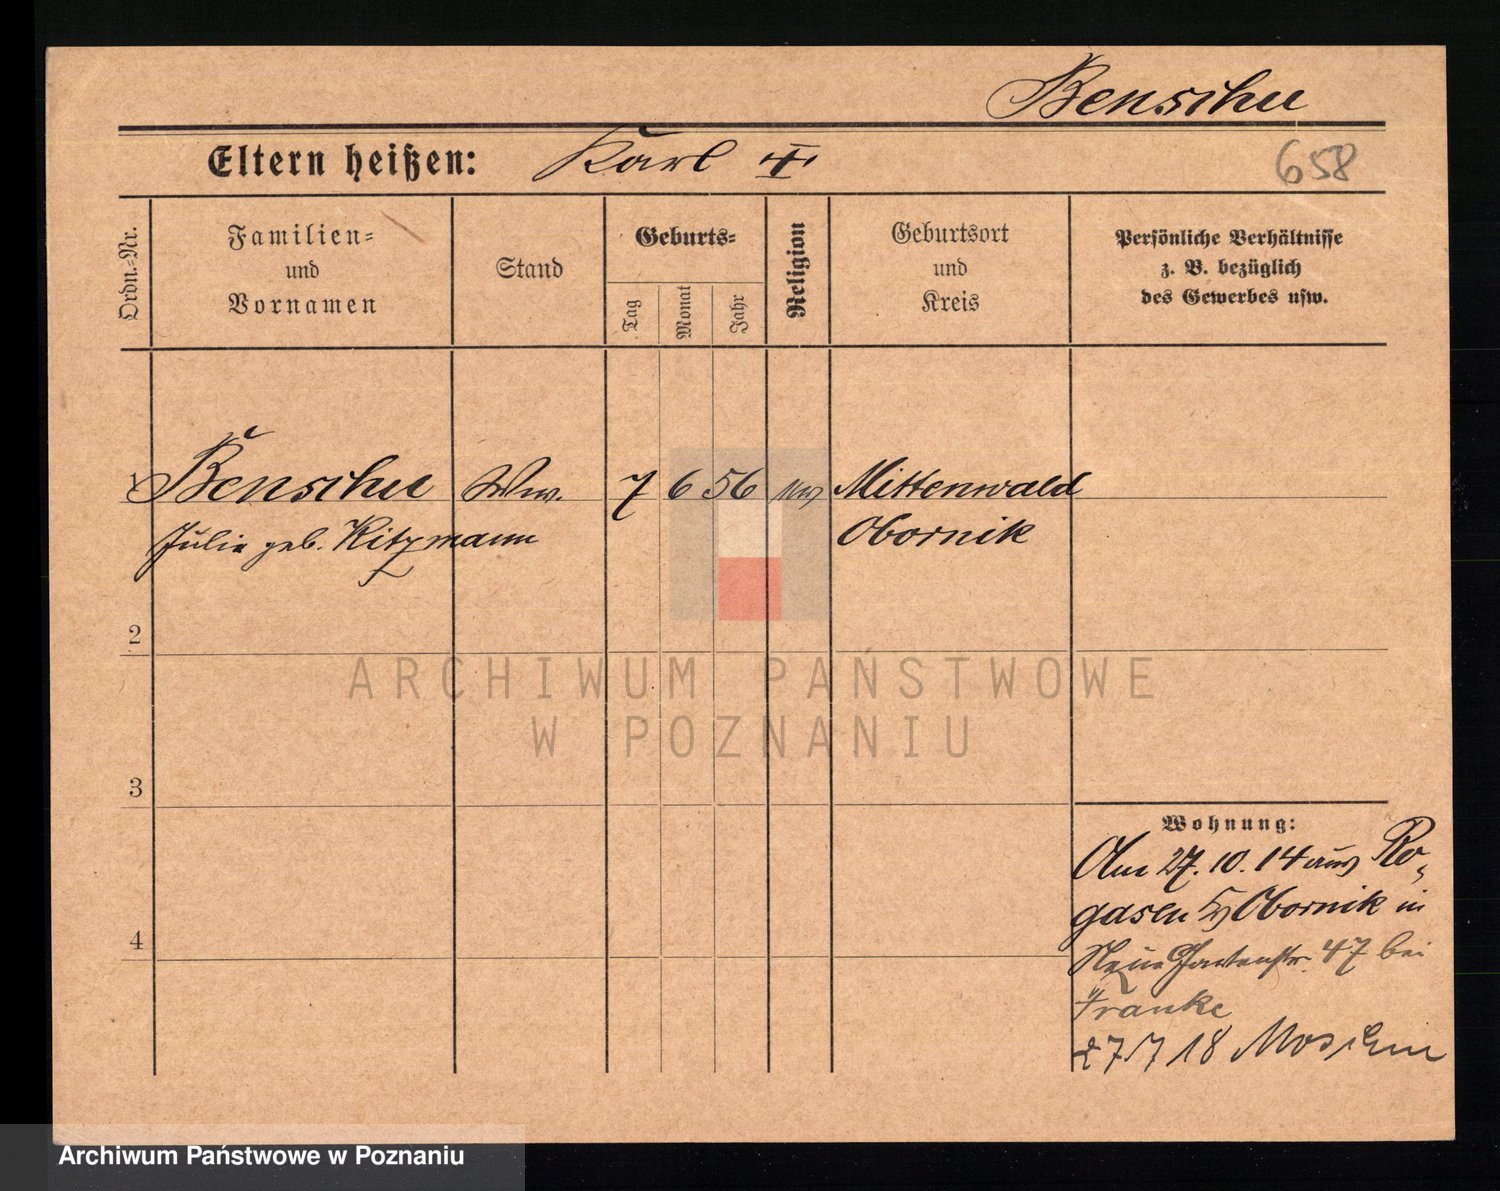 Benschu
Eltern heißen: Karl I
658
Ordn.-Nr.
Familien-
und
Vornamen
Stand
Geburts-
Tag
Monat
Jahr
Religion
Geburtsort
und
Kreis
Persönliche Verhältnisse
z. B. bezüglich
des Gewerbes usw.
1 Benschu Ww. 7 6 56 Mittenwald
Julie geb. Kitzmann Obornik
2
ARCHIWUM PAŃSTWOWE
W POZNANIU
3
4
Wohnung:
Am 27.10.14 aus Ro-
gasen Obornik in
Neue Gartenstr. 47 bei
Franke
27/7 18 Moschin
Archiwum Państwowe w Poznaniu